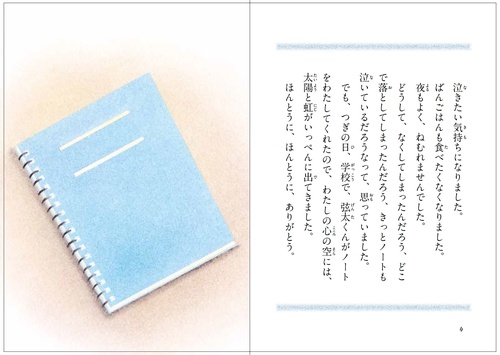 泣きたい気持ちになりました。
ばんごはんも食べたくなくなりました。
夜もよく、ねむれませんでした。
どうして、なくしてしまったんだろう、どこ
で落としてしまったんだろう、きっとノートも
泣いているだろうなって、思っていました。
でも、つぎの日、学校で、弦太くんがノート
をわたしてくれたので、わたしの心の空には、
太陽と虹がいっぺんに出てきました。
ほんとうに、ほんとうに、ありがとう。